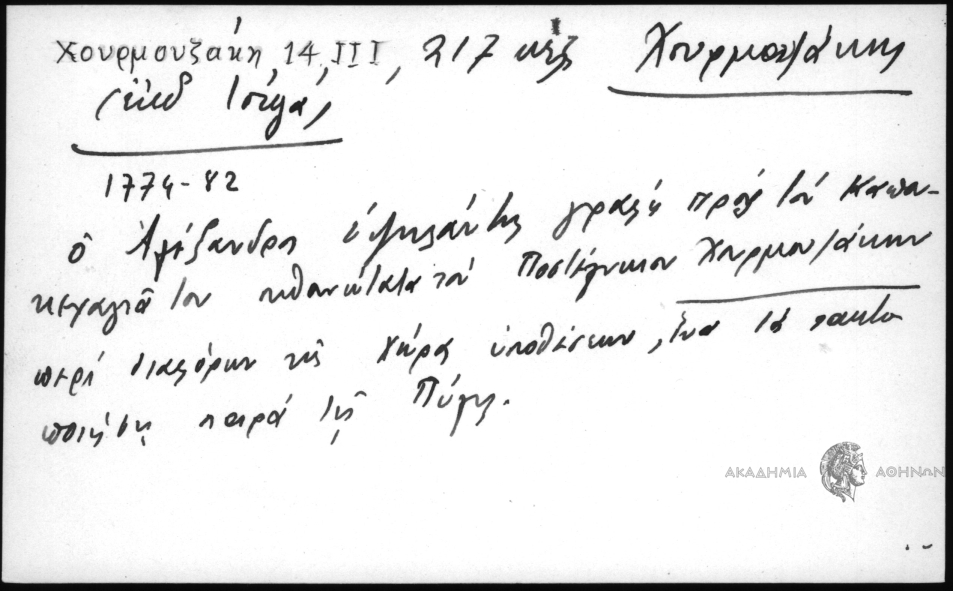 Χουρμουζάκη, 14, III, 217 κἑξ Χουρμουζάκης
1774-82
ὁ Ἀλέξανδρος Ὑψηλάντης γράφει πρός τόν Καπου-
κεχαγιᾶ του Ποστέλνικον Χουρμουζάκην
περί διαφόρων τῆς χώρας ὑποθέσεων, ἵνα τά τακτο
ποιήσῃ παρά τῆς Πύλης.
ΑΚΑΔΗΜΙΑ ΑΘΗΝΩΝ